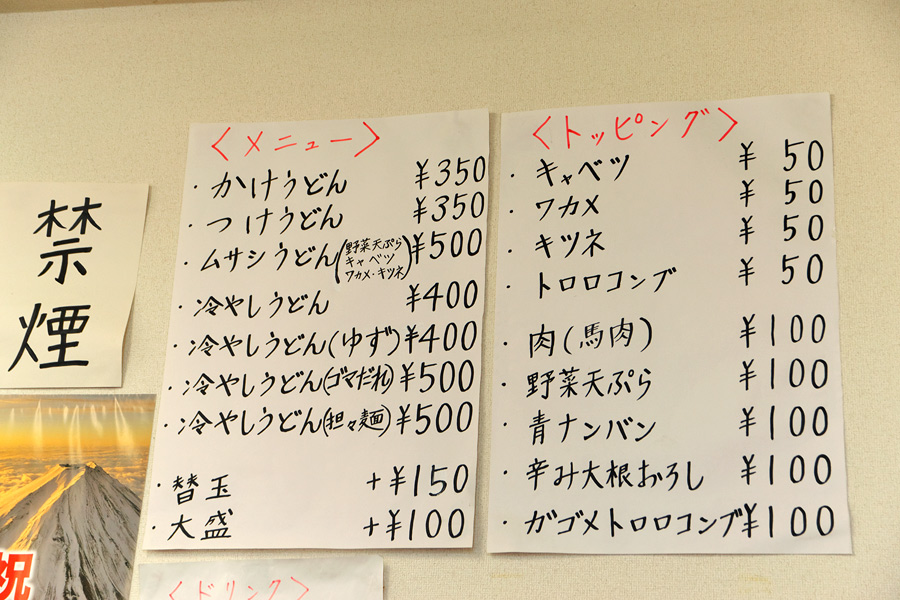 禁
煙
祝
<メニュー>
・かけうどん ¥350
・つけうどん ¥350
・ムサシうどん(野菜天ぷら ¥500
キャベツ
ワカメ・キツネ)
・冷やしうどん ¥400
・冷やしうどん(ゆず) ¥400
・冷やしうどん(ゴマだれ) ¥500
・冷やしうどん(担々麺) ¥500
・替玉 +¥150
・大盛 +¥100
<ドリンク>
<トッピング>
・キャベツ ¥50
・ワカメ ¥50
・キツネ ¥50
・トロロコンブ ¥50
・肉(馬肉) ¥100
・野菜天ぷら ¥100
・青ナンバン ¥100
・辛み大根おろし ¥100
・ガゴメトロロコンブ ¥100